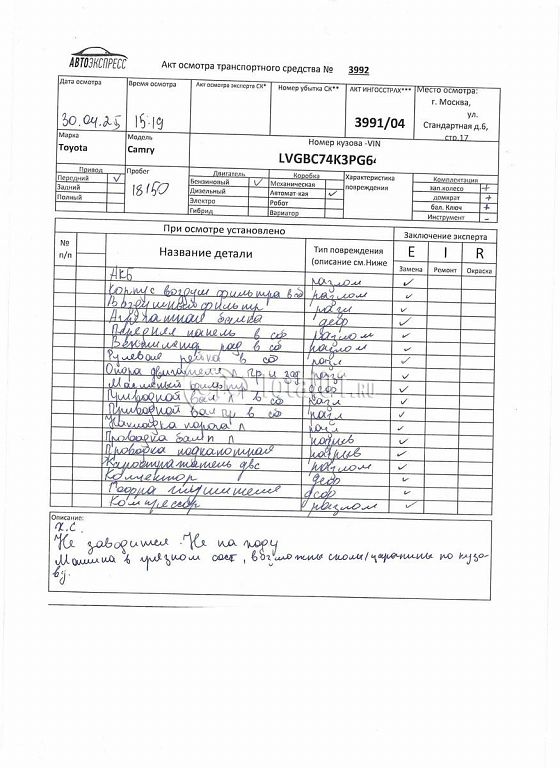 АВТОЭКСПРЕСС
Акт осмотра транспортного средства № 3992
Дата осмотра
30.04.25
Время осмотра
15:19
Акт осмотра эксперта СК*
Номер убытка СК**
АКТ ИНГОССТРАХ***
3991/04
Место осмотра:
г. Москва,
ул.
Стандартная д.6,
стр.17
Марка
Toyota
Модель
Camry
Номер кузова -VIN
LVGBC74K3PG6
Привод
Передний ✓
Задний
Полный
Пробег
18150
Двигатель
Бензиновый ✓
Дизельный
Электро
Гибрид
Коробка
Механическая
Автомат-кая ✓
Робот
Вариатор
Характеристика
повреждения
Комплектация
зап.колесо +
домкрат +
бал. Ключ +
Инструмент -
При осмотре установлено
Заключение эксперта
№
п/п
Название детали
Тип повреждения
(описание см.Ниже
E I R
Замена Ремонт Окраска
АКБ разлом ✓
Корпус воздуш фильтра в сб разлом ✓
Воздушный фильтр разл ✓
деф ✓
Передняя панель в сб разлом ✓
рад в сб разлом ✓
Рулевая рейка в сб разл ✓
Опора двигателя л пр. и зад разл ✓
Масляный фильтр деф ✓
Приводной вал л в сб разл ✓
Приводной вал пр в сб разл ✓
Накладка порога л разл ✓
Проводка л надрыв ✓
Проводка подкапотная разрыв ✓
двс разлом ✓
Коллектор деф ✓
глушителя деф ✓
Компрессор разлом ✓
Описание:
Х.С.
Не заводится. Не на ходу
Машина в грязном сост, возможны сколы/царапины по кузо-
ву.
TOTAL01.RU